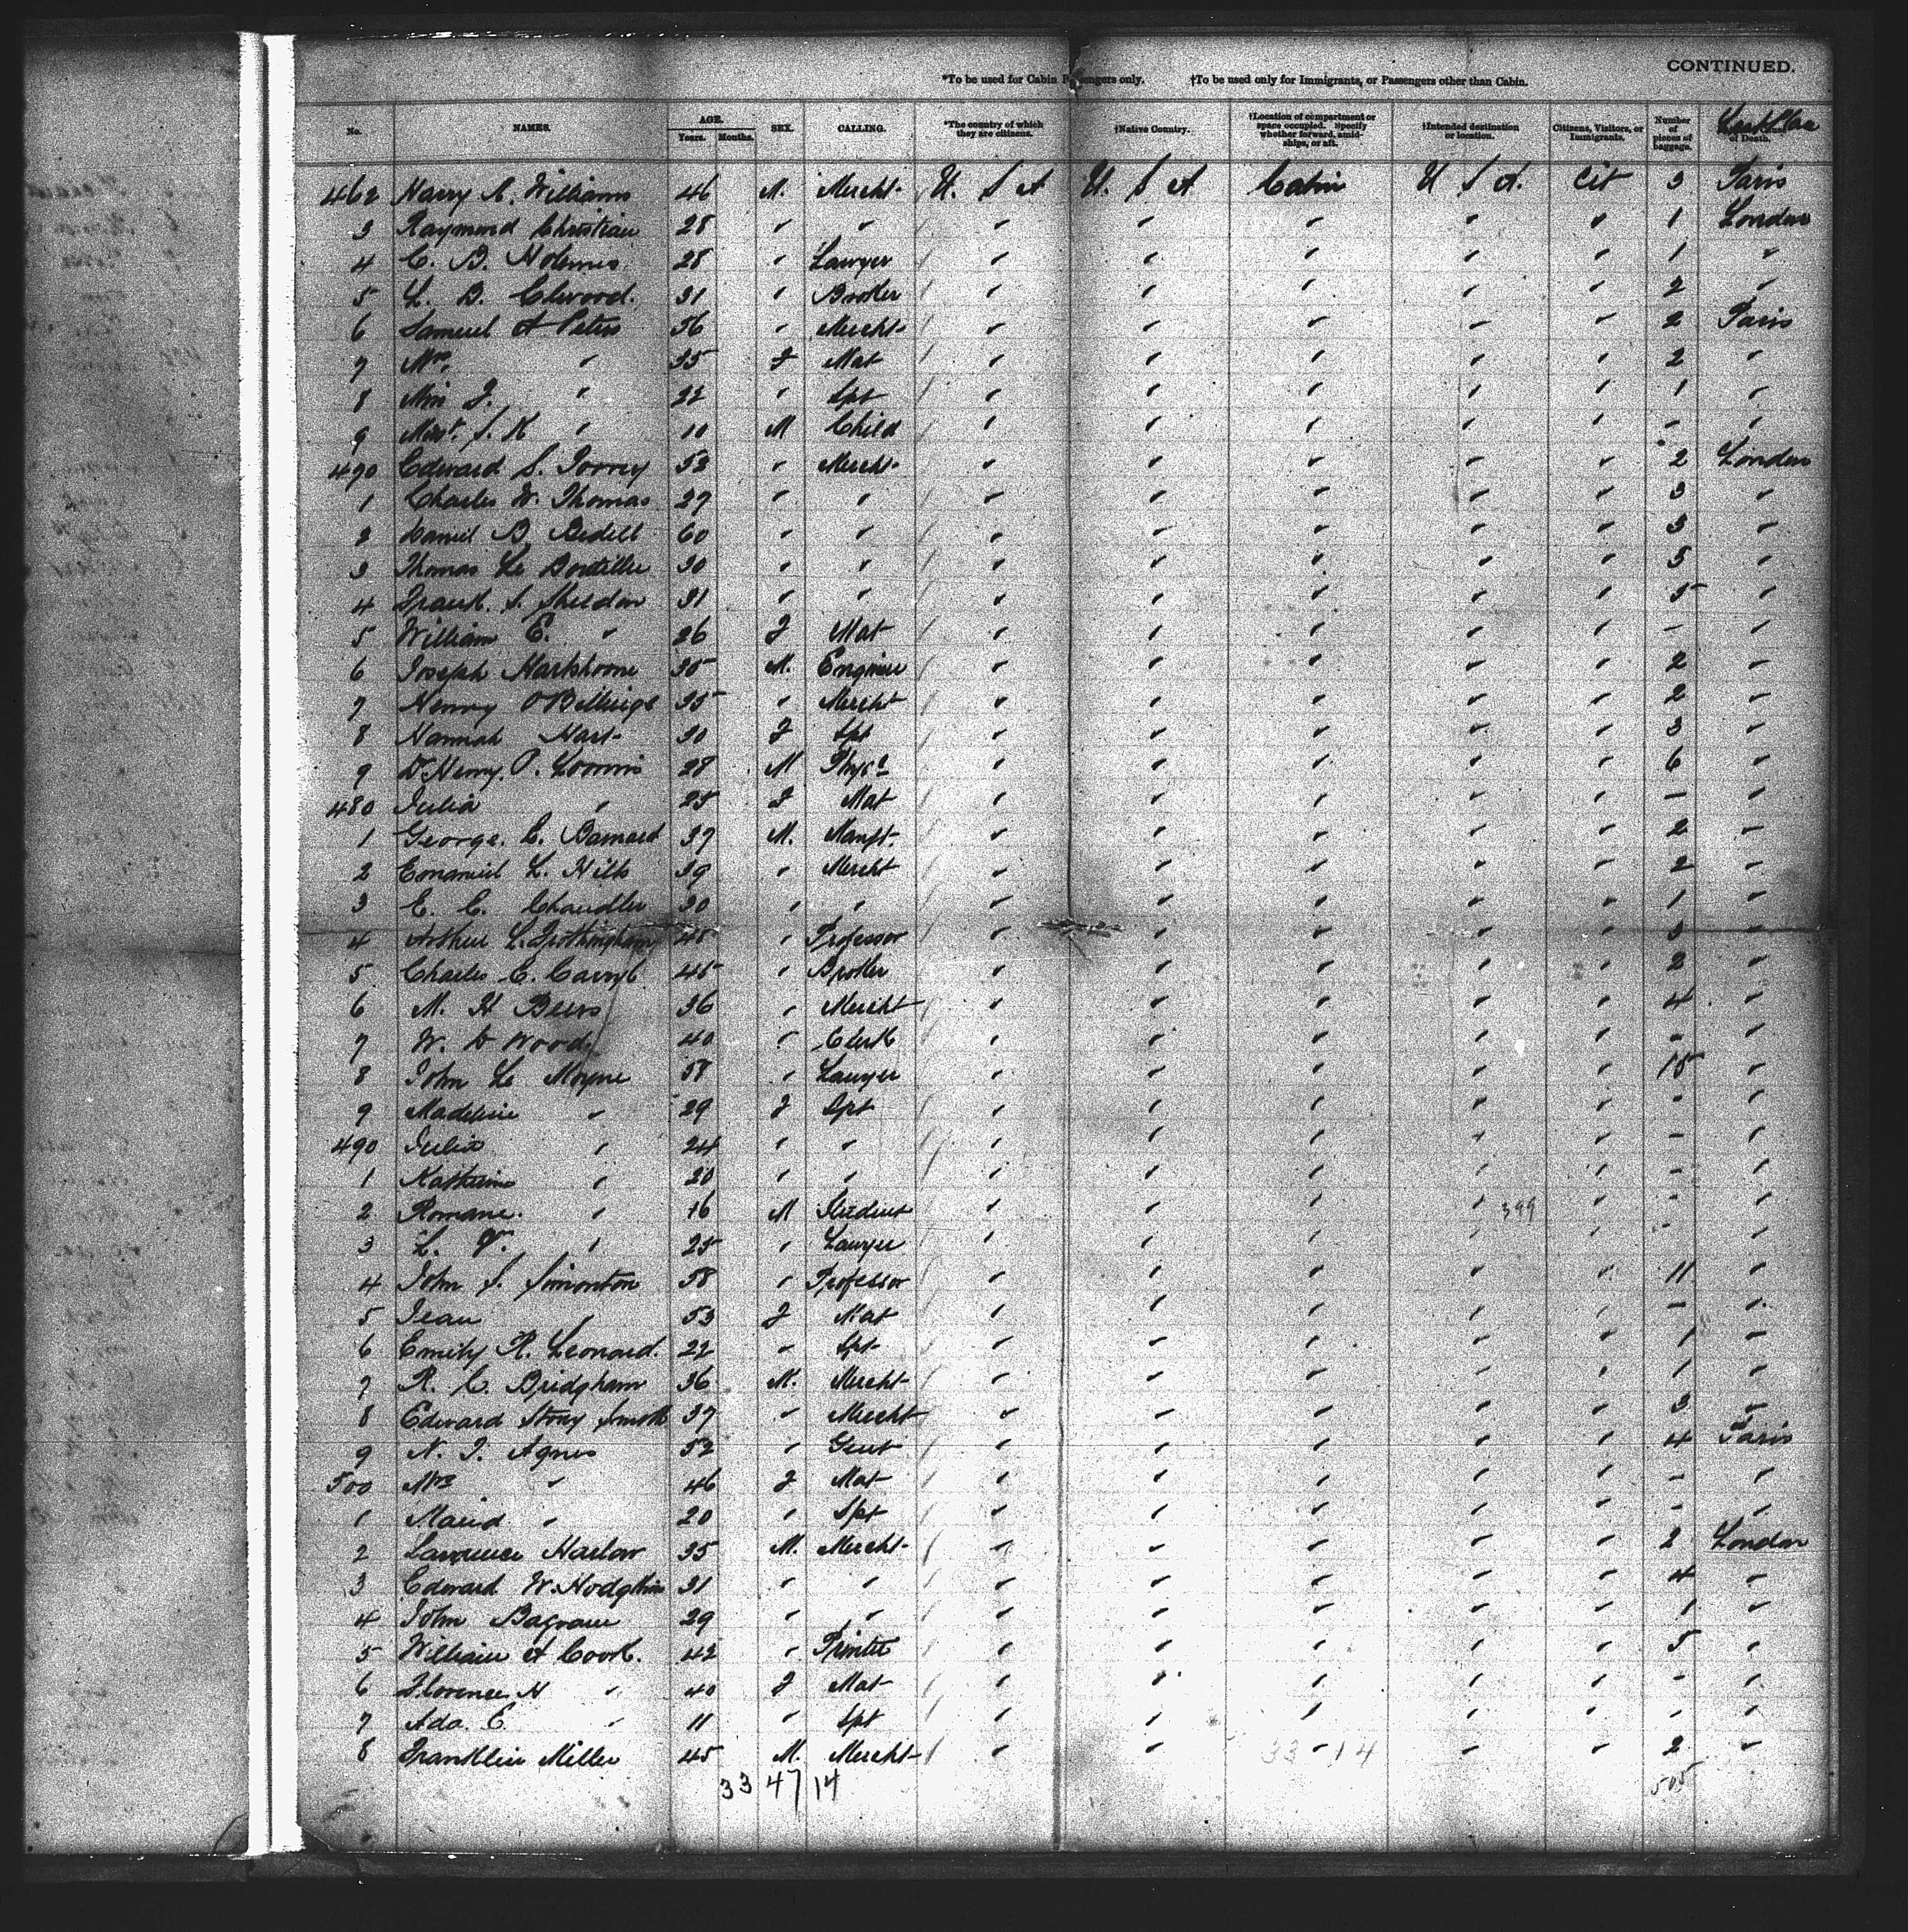 CONTINUED.
*To be used for Cabin Passengers only. †To be used only for Immigrants, or Passengers other than Cabin.
No. NAMES. AGE. Years. Months. SEX. CALLING. *The country of which they are citizens. †Native Country. †Location of compartment or space occupied. Specify whether forward, amidships, or aft. †Intended destination or location. Citizens, Visitors, or Immigrants. Number of pieces of baggage. of Death.
462 Harry C. Williams 46 M. Mercht. U. S A U. S A Cabin U S A. Cit 3 Paris
3 Raymond Christian 28 " " " " " " " 1 London
4 C. B. Holmes 28 " Lawyer " " " " " 1 "
5 L. B. Elwood. 31 " Broker " " " " " 2 "
6 Samuel A Peters 36 " Mercht. " " " " " 2 Paris
7 Mrs. " 35 F Mat " " " " " 2 "
8 Miss J. " 22 " Spt " " " " " 1 "
9 Mast. S. K " 10 M Child " " " " " - "
490 Edward S. 53 " Mercht. " " " " " 2 London
1 Charles W. Thomas 27 " " " " " " " 3 "
2 Daniel B. Bedell 60 " " " " " " " 3 "
3 Thomas Le Boutillier 30 " " " " " " " 5 "
4 Frank. S. Sheldon 31 " " " " " " " 5 "
5 William E. " 26 F Mat " " " " " - "
6 Joseph Hartshorne 35 M. Engineer " " " " " 2 "
7 Henry O Billings 35 " Mercht " " " " " 2 "
8 Hannah Hart 30 F Spt " " " " " 3 "
9 Dr Henry. P. Loomis 28 M Physn " " " " " 6 "
480 Julia " 25 F Mat " " " " " - "
1 George. E. Barnard 37 M. Manft. " " " " " 2 "
2 Emanuel L. Hills 39 " Mercht " " " " " 2 "
3 E. C. Chandler 30 " " " " " " " 1 "
4 Arthur L. Frothingham 48 " Professor " " " " " 3 "
5 Charles E. Carryl 45 " Broker " " " " " 2 "
6 M. H Beers 36 " Mercht " " " " " 4 "
7 W. D Wood 40 " Clerk " " " " " - "
8 John Le Moyne 58 " Lawyer " " " " " 15 "
9 Madeline " 29 F Spt " " " " " - "
490 Julia " 24 " " " " " " " - "
1 Katherine " 20 " " " " " " " - "
2 Romane. " 16 M Student " " " " 399 " - "
3 L. V. " 25 " Lawyer " " " " " - "
4 John S. Simonton 58 " Professor " " " " " 11 "
5 Jean " 53 F Mat " " " " " - "
6 Emily R. Leonard. 22 " Spt " " " " " 1 "
7 R. C. Bridgham 36 M. Mercht " " " " " 1 "
8 Edward Story Smith 37 " Mercht " " " " " 3 "
9 N. T. Agnes 52 " Gent " " " " " 4 Paris
500 Mrs " 46 F Mat " " " " " - "
1 Maud " 20 " Spt " " " " " - "
2 Lawrence Harlow 35 M. Mercht. " " " " " 2 London
3 Edward W. Hodgkins 31 " " " " " " " 4 "
4 John 29 " " " " " " " 1 "
5 William A Cook. 42 " Printer " " " " " 5 "
6 Florence H " 40 F Mat " " " " " - "
7 Ada. E. " 11 " Spt " " " " " - "
8 Franklin Miller 45 M. Mercht " " 33 - 14 " " 2 "
33 47 14 505